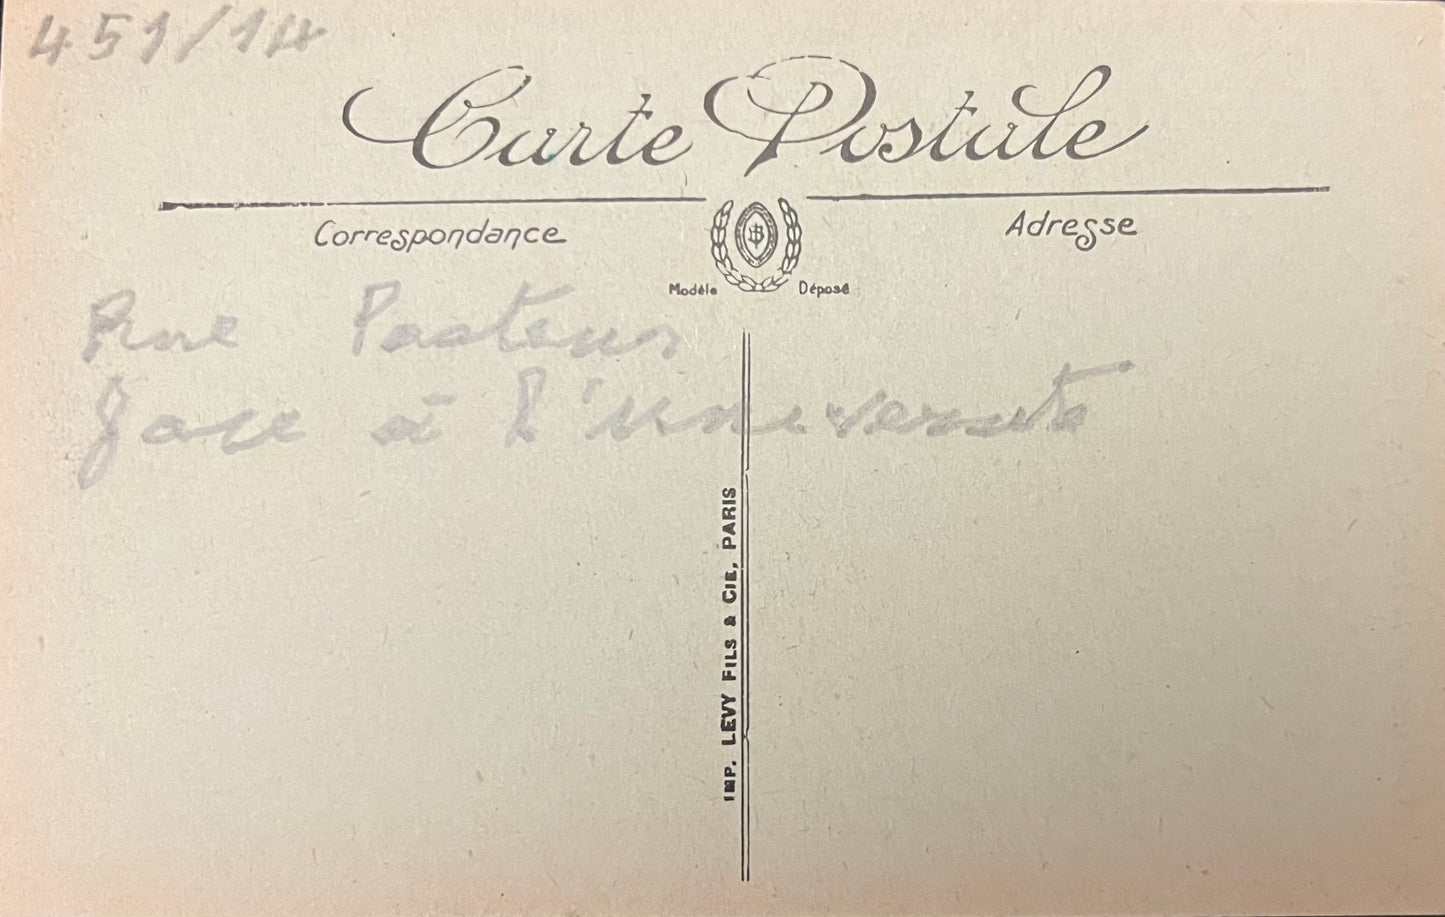 451/14
Carte Postale
Correspondance
Adresse
Modèle Déposé
Rue Pasteur
face à l'université
IMP. LÉVY FILS & CIE, PARIS